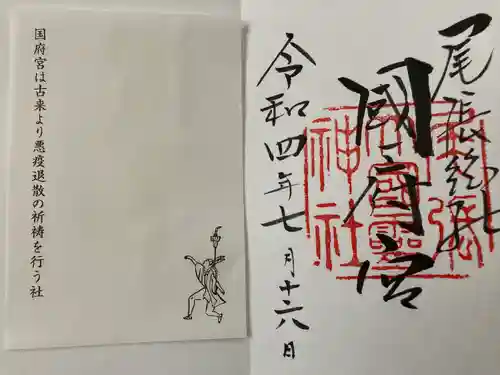 尾張総社
國府宮
令和四年七月十六日
国府宮は古来より悪疫退散の祈祷を行う社